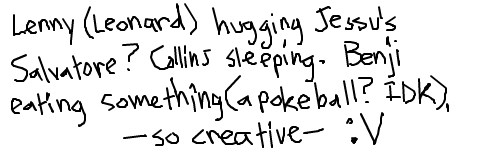 Lenny (Leonard) hugging Jessu's
Salvatore? Collins sleeping. Benji
eating something (a pokeball? IDK),
—so creative— :V